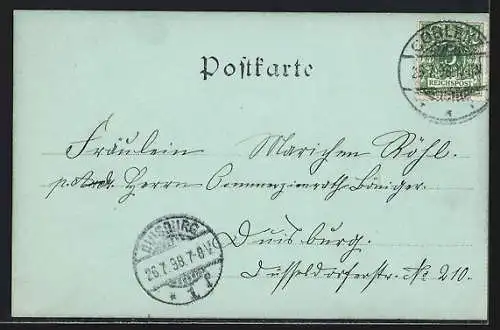 COBLENZ
5
26.7.98
REICHSPOST
Postkarte
Fräulein Mariechen Röhl.
p. Adr. Herrn Commerzienrath Böninger.
DUISBURG
26.7.98.7-8V.
* 1 f
Duisburg.
Düsseldorferstr. No 210.